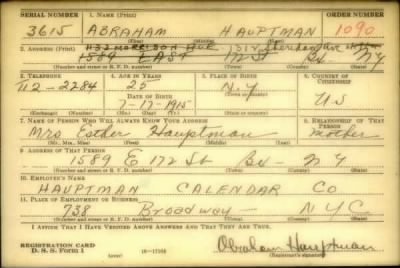 SERIAL NUMBER 1. NAME (Print) ORDER NUMBER
3615 ABRAHAM HAUPTMAN 1090
(First) (Middle) (Last)
2. ADDRESS (Print) 1132 MORRISON AVE
1589 EAST 172 St Bx NY
(Number and street or R. F. D. number) (Town) (County) (State)
3. TELEPHONE 4. AGE IN YEARS 5. PLACE OF BIRTH 6. COUNTRY OF CITIZENSHIP
TI2-2284 25 N.Y.
DATE OF BIRTH (Town or county)
7-17-1915 US
(Exchange) (Number) (Mo.) (Day) (Yr.) (State or country)
7. NAME OF PERSON WHO WILL ALWAYS KNOW YOUR ADDRESS 8. RELATIONSHIP OF THAT PERSON
Mrs Esther Hauptman mother
(Mr., Mrs., Miss) (First) (Middle) (Last)
9. ADDRESS OF THAT PERSON
1589 E 172 St Bx - N Y
(Number and street or R. F. D. number) (Town) (County) (State)
10. EMPLOYER'S NAME
HAUPTMAN CALENDAR CO
11. PLACE OF EMPLOYMENT OR BUSINESS
738 Broadway - N.Y.C.
(Number and street or R. F. D. number) (Town) (County) (State)
I AFFIRM THAT I HAVE VERIFIED ABOVE ANSWERS AND THAT THEY ARE TRUE.
REGISTRATION CARD
D. S. S. Form 1 Abraham Hauptman
(Registrant's signature)